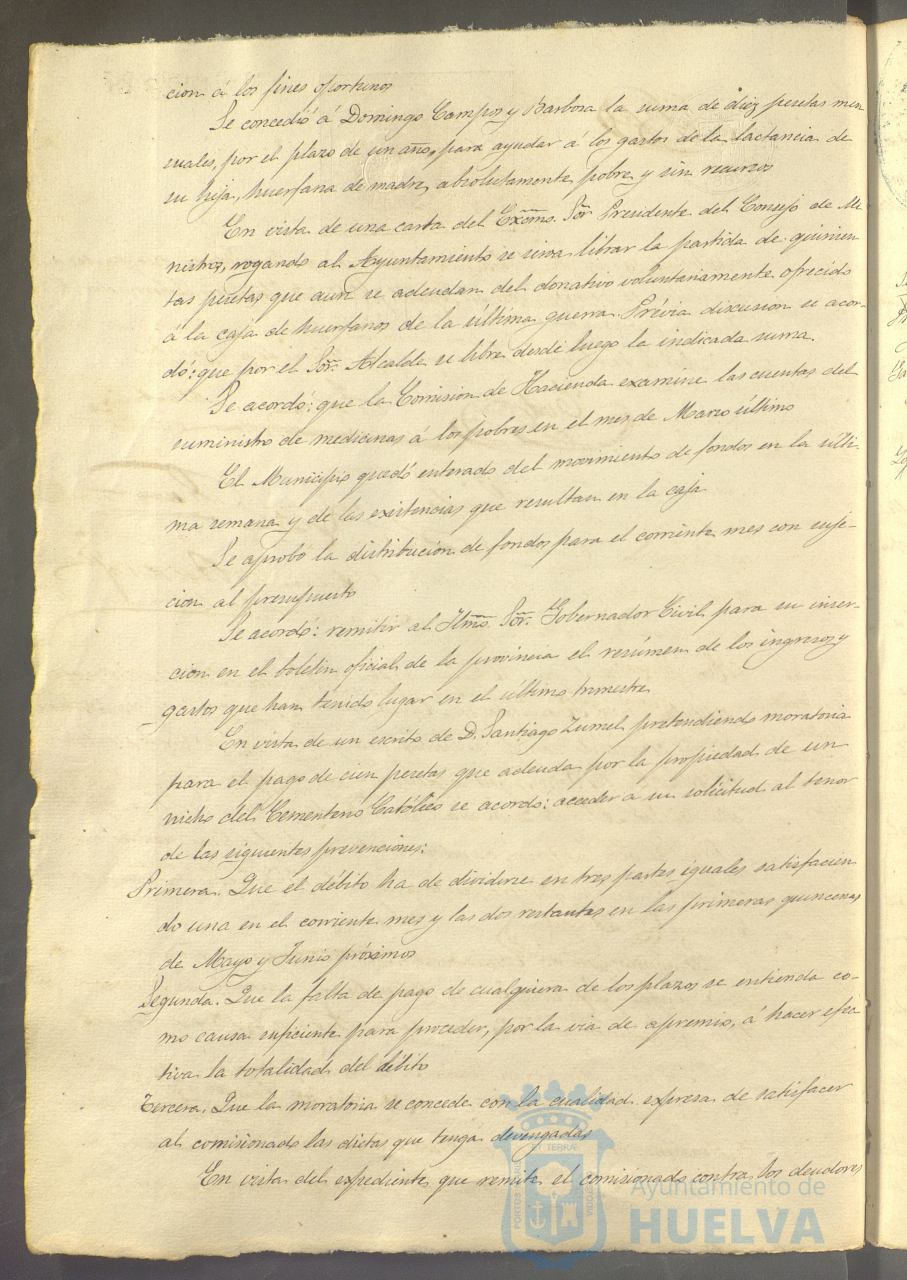 cion á los fines oportunos
Se concedió á Domingo Campos y Barbosa la suma de diez pesetas men
suales, por el plazo de un año, para ayudar á los gastos de la lactancia de
su hija, huerfana de madre, absolutamente pobre y sin recursos
En vista de una carta del Excmo. Sor. Presidente del Consejo de Mi-
nistros, rogando al Ayuntamiento se sirva librar la partida de quinien
tas pesetas que aun se adeudan del donativo voluntariamente ofrecido
á la caja de huerfanos de la última guerra. Prévia discusion se acor-
dó: que por el Sor. Alcalde se libre desde luego la indicada suma.
Se acordó: que la Comision de Hacienda examine las cuentas del
suministro de medicinas á los pobres en el mes de Marzo último
El Municipio quedó enterado del movimiento de fondos en la últi-
ma semana y de las existencias que resultan en la caja
Se aprobó la distribución de fondos para el corriente mes con suje-
cion al presupuesto
Se acordó: remitir al Iltmo. Sor. Gobernador Civil para su inser-
cion en el boletin oficial de la provincia el resúmen de los ingresos y
gastos que han tenido lugar en el último trimestre
En vista de un escrito de D. Santiago Zumel pretendiendo moratoria
para el pago de cien pesetas que adeuda por la propiedad de un
nicho del Cementerio Católico se acordó: acceder á su solicitud al tenor
de las siguientes prevenciones:
Primera. Que el débito ha de dividirse en tres partes iguales satisfacien
do una en el corriente mes y las dos restantes en las primeras quincenas
de Mayo y Junio próximos
Segunda. Que la falta de pago de cualquiera de los plazos se entienda co-
mo causa suficiente para proceder, por la via de apremio, á hacer efec
tiva la totalidad del débito
Tercera. Que la moratoria se concede con la cualidad expresa de satisfacer
al comisionado las dietas que tenga devengadas
En vista del expediente que remite el comisionado contra los deudores
Ayuntamiento de
HUELVA